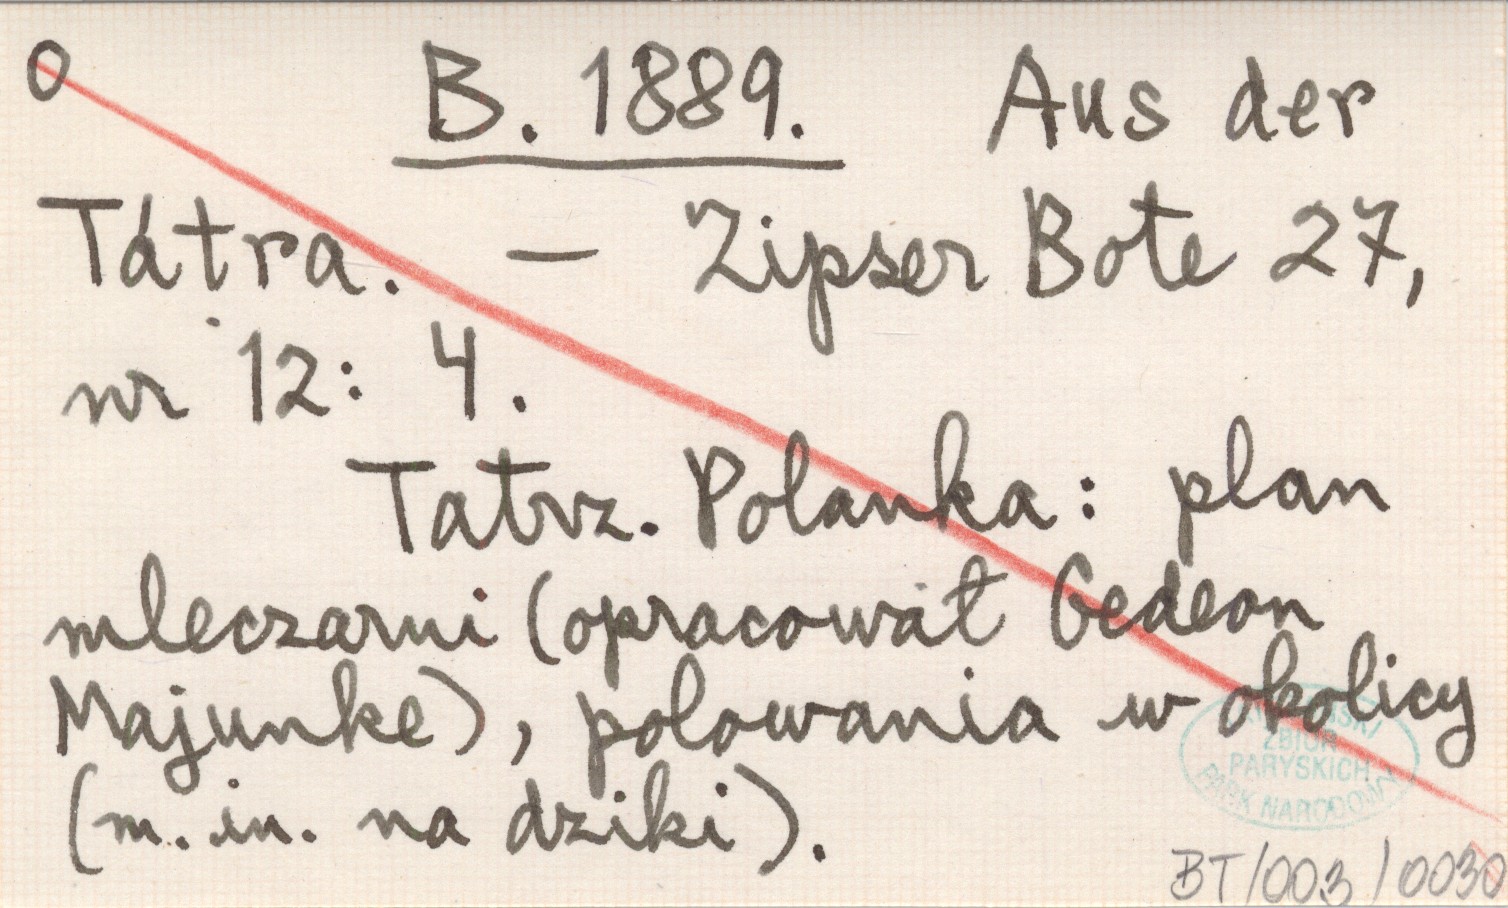 O B. 1889. Aus der
Tátra. — Zipser Bote 27,
nr 12: 4.
Tatrz. Polanka: plan
mleczarni (opracował Gedeon
Majunke), polowania w okolicy
(m. in. na dziki).
ZBIÓR
PARYSKICH
PARK NARODOWY
BT/003/0030